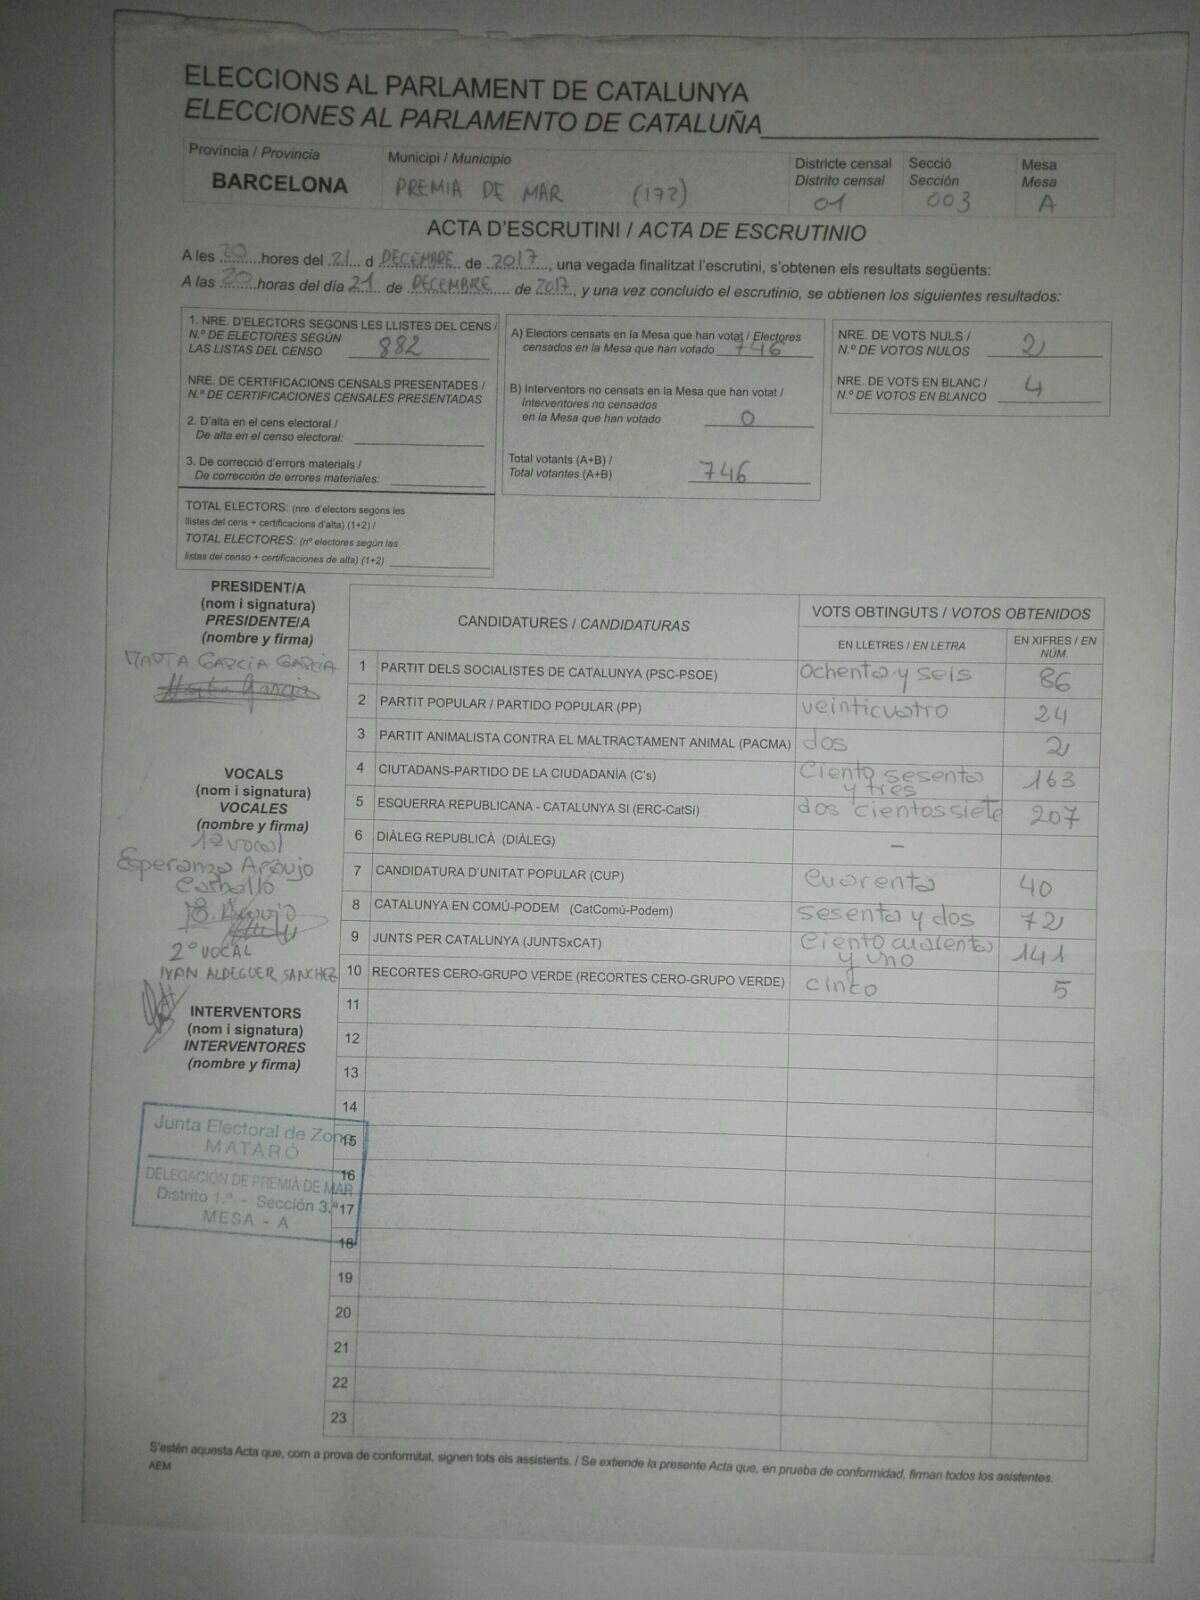 ELECCIONS AL PARLAMENT DE CATALUNYA
ELECCIONES AL PARLAMENTO DE CATALUÑA
Província / Provincia
BARCELONA
Municipi / Municipio
PREMIA DE MAR (172)
Districte censal
Distrito censal
01
Secció
Sección
003
Mesa
Mesa
A
ACTA D'ESCRUTINI / ACTA DE ESCRUTINIO
A les 20 hores del 21 d DECEMBRE de 2017, una vegada finalitzat l'escrutini, s'obtenen els resultats següents:
A las 20 horas del día 21 de DECEMBRE de 2017, y una vez concluido el escrutinio, se obtienen los siguientes resultados:
1. NRE. D'ELECTORS SEGONS LES LLISTES DEL CENS /
N.º DE ELECTORES SEGÚN
LAS LISTAS DEL CENSO 882
NRE. DE CERTIFICACIONS CENSALS PRESENTADES /
N.º DE CERTIFICACIONES CENSALES PRESENTADAS
2. D'alta en el cens electoral /
De alta en el censo electoral:
3. De correcció d'errors materials /
De corrección de errores materiales:
TOTAL ELECTORS: (nre. d'electors segons les
llistes del cens + certificacions d'alta) (1+2) /
TOTAL ELECTORES: (nº electores según las
listas del censo + certificaciones de alta) (1+2)
A) Electors censats en la Mesa que han votat / Electores
censados en la Mesa que han votado 746
B) Interventors no censats en la Mesa que han votat /
Interventores no censados
en la Mesa que han votado 0
Total votants (A+B) /
Total votantes (A+B) 746
NRE. DE VOTS NULS /
N.º DE VOTOS NULOS 2
NRE. DE VOTS EN BLANC /
N.º DE VOTOS EN BLANCO 4
PRESIDENT/A
(nom i signatura)
PRESIDENTE/A
(nombre y firma)
MARTA GARCIA GARCIA
VOCALS
(nom i signatura)
VOCALES
(nombre y firma)
1º vocal
Esperanza Araujo
Carballo
E. Araujo
2º VOCAL
IVAN ALDEGUER SANCHEZ
INTERVENTORS
(nom i signatura)
INTERVENTORES
(nombre y firma)
CANDIDATURES / CANDIDATURAS
VOTS OBTINGUTS / VOTOS OBTENIDOS
EN LLETRES / EN LETRA
EN XIFRES / EN
NÚM.
1 PARTIT DELS SOCIALISTES DE CATALUNYA (PSC-PSOE) ochenta y seis 86
2 PARTIT POPULAR / PARTIDO POPULAR (PP) veinticuatro 24
3 PARTIT ANIMALISTA CONTRA EL MALTRACTAMENT ANIMAL (PACMA) dos 2
4 CIUTADANS-PARTIDO DE LA CIUDADANÍA (C's) Ciento sesenta
y tres 163
5 ESQUERRA REPUBLICANA - CATALUNYA SI (ERC-CatSí) dos cientos siete 207
6 DIÀLEG REPUBLICÀ (DIÀLEG) –
7 CANDIDATURA D'UNITAT POPULAR (CUP) Cuarenta 40
8 CATALUNYA EN COMÚ-PODEM (CatComú-Podem) sesenta y dos 72
9 JUNTS PER CATALUNYA (JUNTSxCAT) Ciento cuarenta
y uno 141
10 RECORTES CERO-GRUPO VERDE (RECORTES CERO-GRUPO VERDE) cinco 5
11
12
13
14
15
16
17
18
19
20
21
22
23
Junta Electoral de Zona
MATARÓ
DELEGACIÓN DE PREMIÀ DE MAR
Distrito 1.º - Sección 3.ª
MESA - A
S'estén aquesta Acta que, com a prova de conformitat, signen tots els assistents. / Se extiende la presente Acta que, en prueba de conformidad, firman todos los asistentes.
AEM